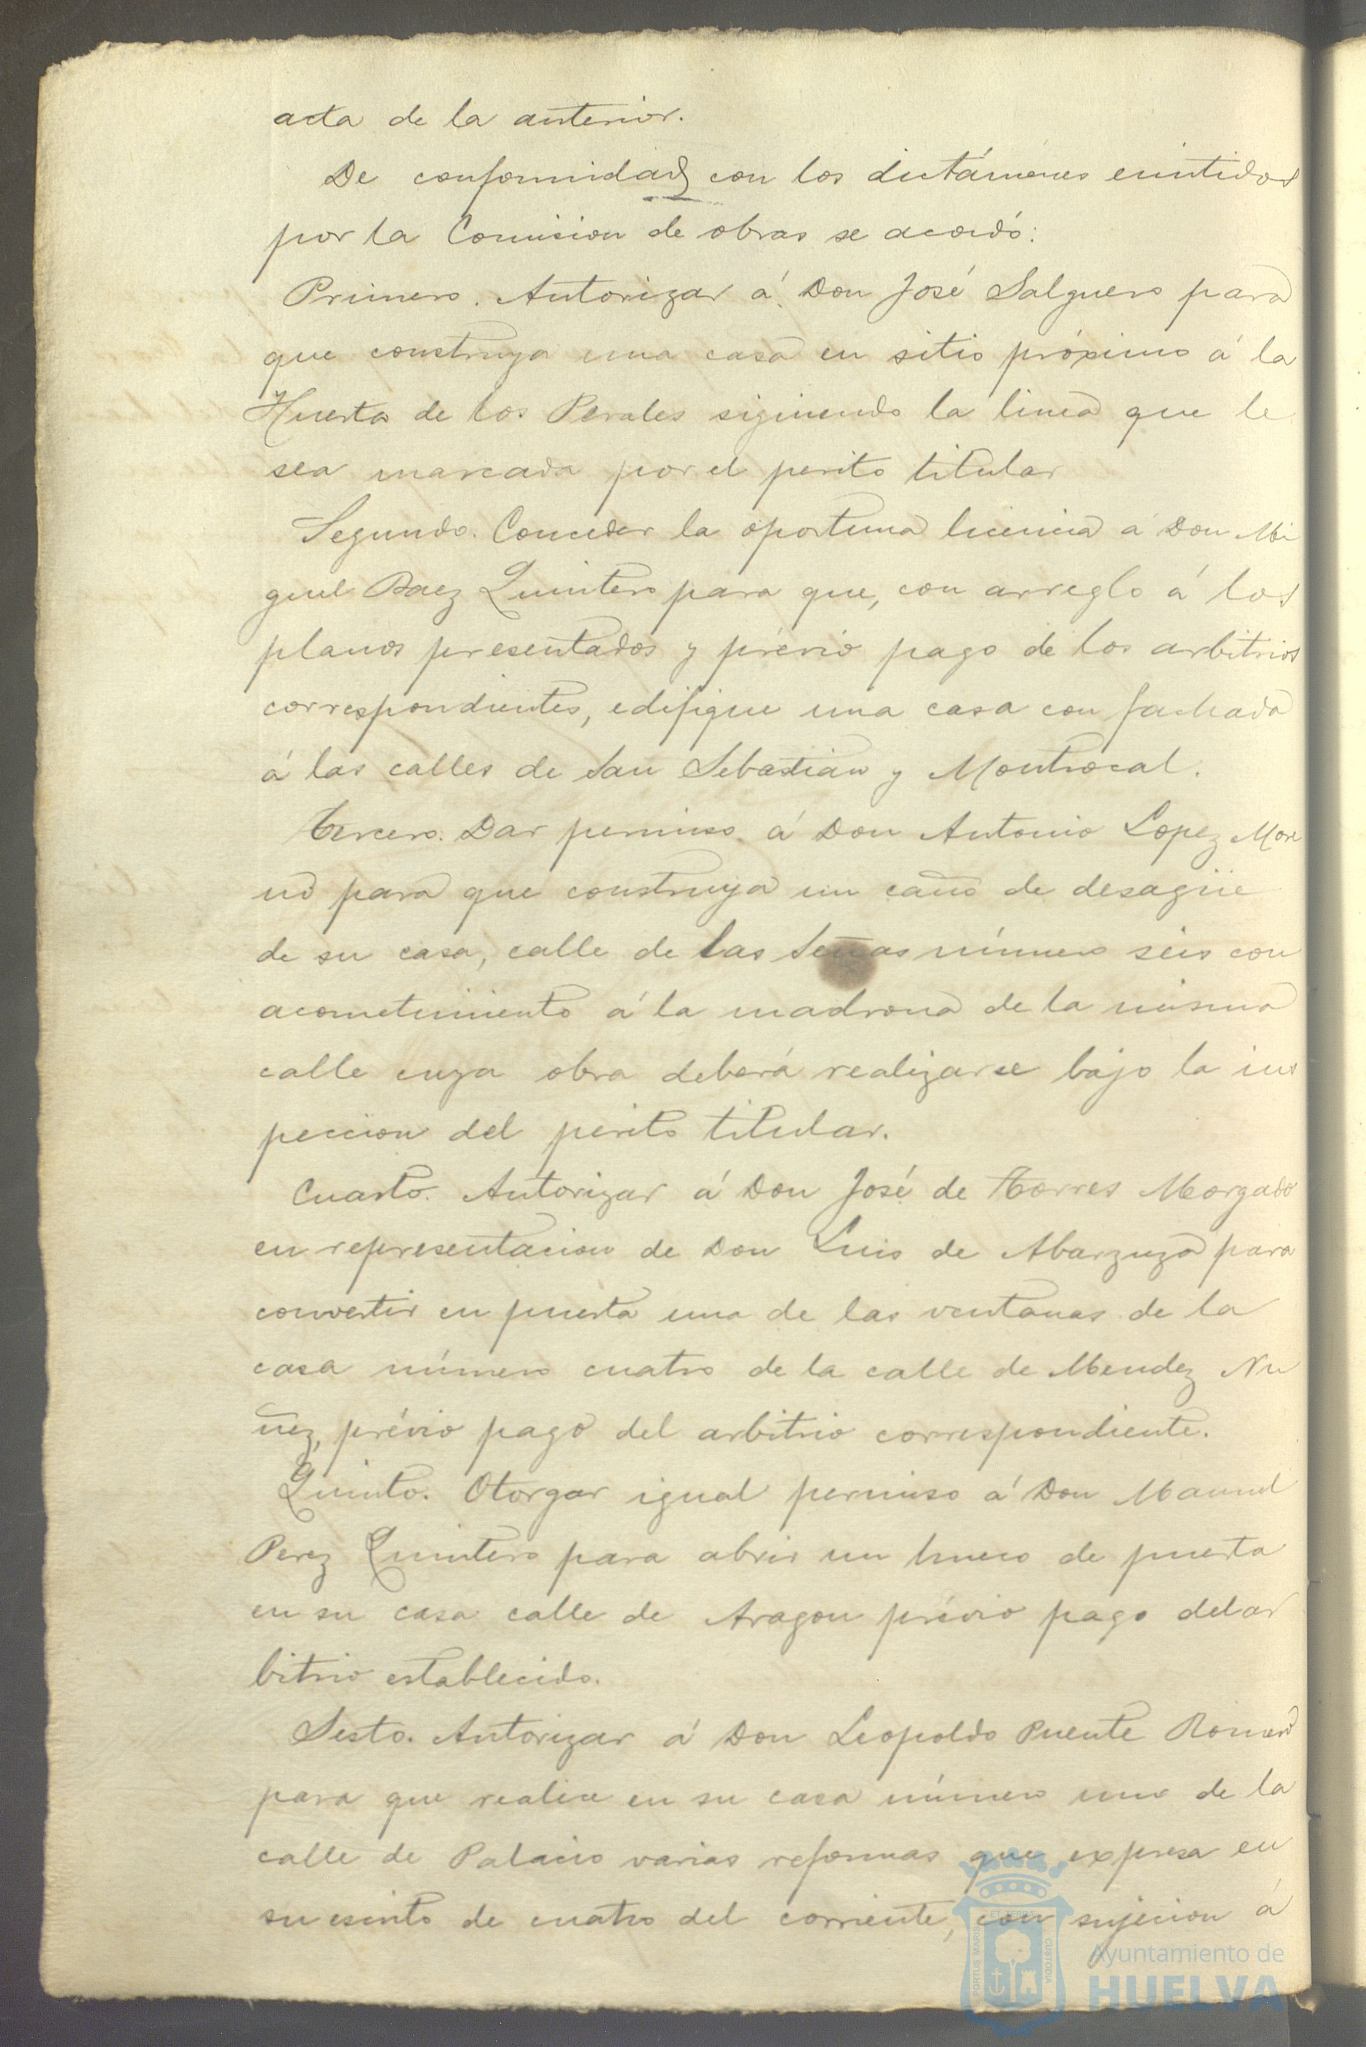 acta de la anterior.
De conformidad con los dictámenes emitidos
por la Comision de obras se acordó:
Primero. Autorizar á Don José Salguero para
que construya una casa en sitio próximo á la
Huerta de los Perales siguiendo la linea que le
sea marcada por el perito titular
Segundo. Conceder la oportuna licencia á Don Mi
guel Baez Quintero para que, con arreglo á los
planos presentados y prévio pago de los arbitrios
correspondientes, edifique una casa con fachada
á las calles de San Sebastian y Montrocal.
Tercero. Dar permiso á Don Antonio Lopez More
no para que construya un caño de desagüe
de su casa, calle de las Señas número seis con
acometimiento á la madrona de la misma
calle cuya obra deberá realizarse bajo la ins
peccion del perito titular.
Cuarto. Autorizar á Don José de Torres Morgado
en representacion de Don Luis de Abarzuza para
convertir en puerta una de las ventanas de la
casa número cuatro de la calle de Mendez Nu
ñez, prévio pago del arbitrio correspondiente.
Quinto. Otorgar igual permiso á Don Manuel
Perez Quintero para abrir un hueco de puerta
en su casa calle de Aragon prévio pago del ar
bitrio establecido.
Sesto. Autorizar á Don Leopoldo Puente Romero
para que realice en su casa número uno de la
calle de Palacio varias reformas que expresa en
su escrito de cuatro del corriente, con sujecion á
PORTUS MARIS ET TERRAE CUSTODIA
Ayuntamiento de
HUELVA